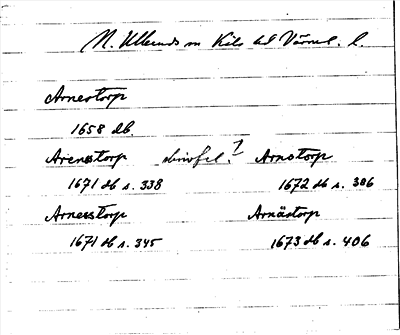 N. Ulleruds sn Kils hd Värml. l.
Arnestorp
1658 db.
Arenstorp skrivfel. ? Arnstorp
1671 db s. 338 1672 db s. 386
Arnesstorp Arnästorp
1671 db s. 345 1673 db s. 406